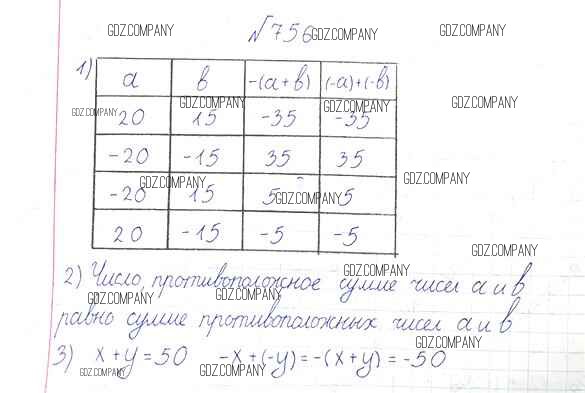 GDZ.COMPANY №756 GDZ.COMPANY GDZ.COMPANY
1)
a в -(a+в) (-a)+(-в)
GDZ.COMPANY GDZ.COMPANY GDZ.COMPANY
GDZ.COMPANY 20 15 -35 -35
-20 -15 35 35
GDZ.COMPANY GDZ.COMPANY
-20 15 5 GDZ.COMPANY 5
20 -15 -5 -5
GDZ.COMPANY
GDZ.COMPANY
2) Число, противоположное сумме чисел a и в
GDZ.COMPANY GDZ.COMPANY
равно сумме противоположных чисел a и в
GDZ.COMPANY
3) x+y=50 -x+(-y)=-(x+y)=-50
GDZ.COMPANY GDZ.COMPANY